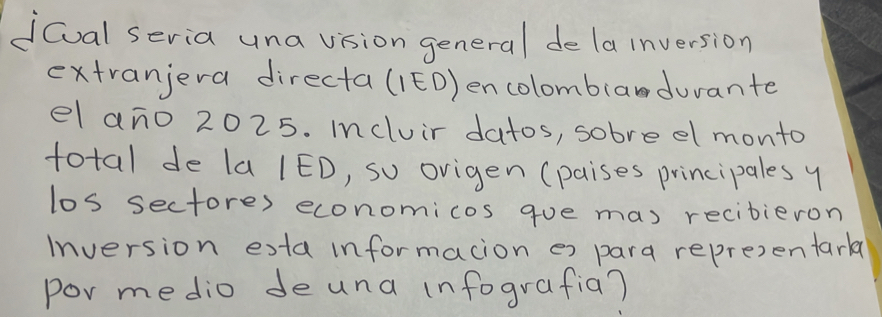 ¿Cual seria una vision general de la inversion
extranjera directa (IED) en colombia durante
el año 2025. Incluir datos, sobre el monto
total de la IED, su origen (paises principales y
los sectores economicos que mas recibieron
Inversion esta informacion es para representarla
por medio de una infografia?